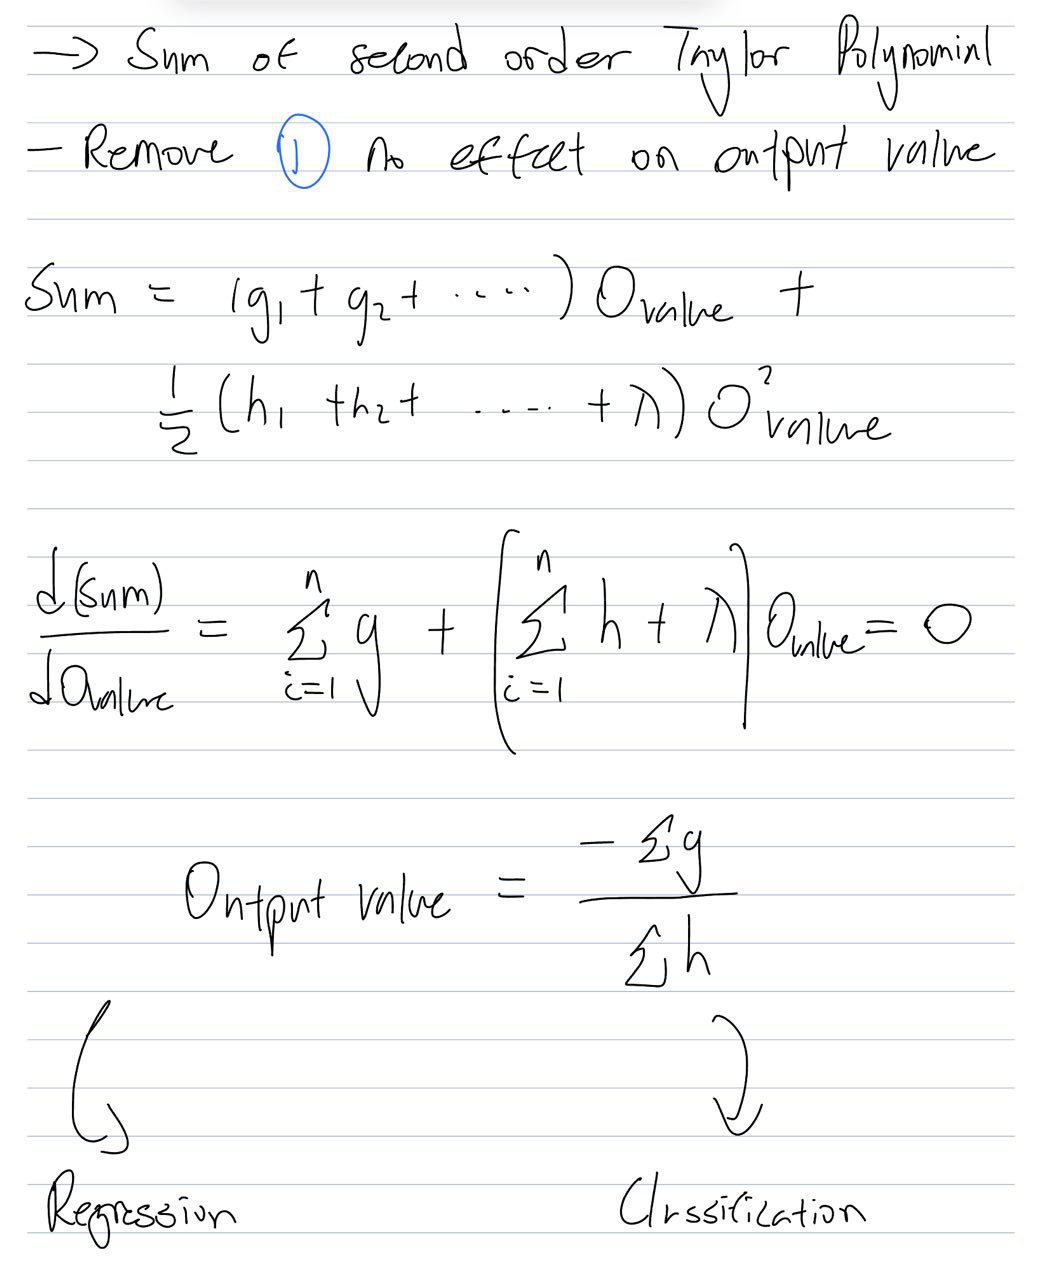 → Sum of second order Taylor Polynomial
- Remove ① no effect on output value
Sum = (g₁ + g₂ + .....) O_value +
½ (h₁ + h₂ + ..... + λ) O²_value
d(sum)/dO_value = Σ_{i=1}^{n} g + (Σ_{i=1}^{n} h + λ) O_value = 0
Output value = -Σg / Σh
Regression Classification